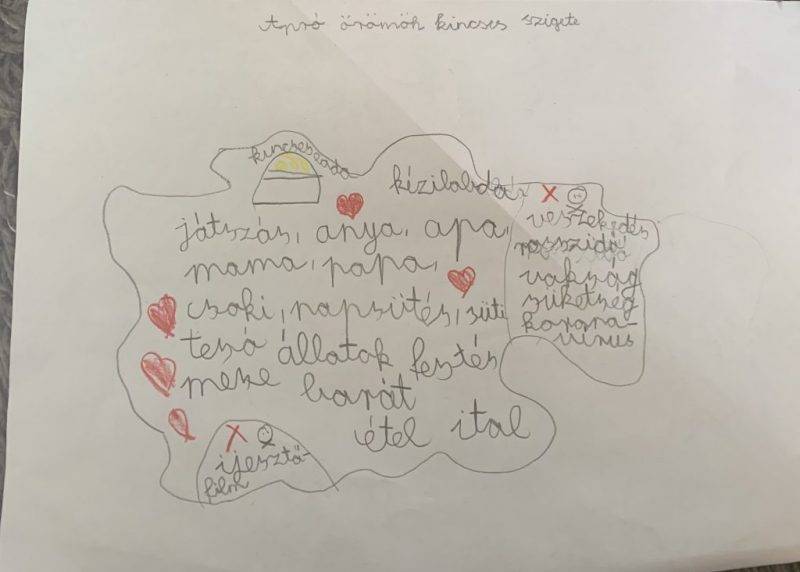 Apró örömök kincses szigete
kincsesláda
kézilabdás
játszás, anya, apa,
mama, papa,
csoki, napsütés, süti
tesó állatok festés
mese barát
étel ital
veszekedés
rosszidő
vakság
süketség
korona-
vírus
ijesztő-
film